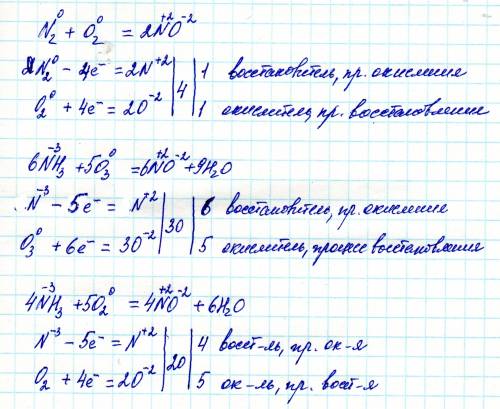 N₂⁰ + O₂⁰ = 2N⁺²O⁻²
N₂⁰ − 4e⁻ = 2N⁺² | 4 | 1 восстановитель, пр. окисление
O₂⁰ + 4e⁻ = 2O⁻² | 1 окислитель, пр. восстановление
6N⁻³H₃ + 5O₃⁰ = 6N⁺²O⁻² + 9H₂O
N⁻³ − 5e⁻ = N⁺² | 30 | 6 восстановитель, пр. окисление
O₃⁰ + 6e⁻ = 3O⁻² | 5 окислитель, процесс восстановления
4N⁻³H₃ + 5O₂⁰ = 4N⁺²O⁻² + 6H₂O
N⁻³ − 5e⁻ = N⁺² | 20 | 4 восст-ль, пр. ок-я
O₂ + 4e⁻ = 2O⁻² | 5 ок-ль, пр. восст-я